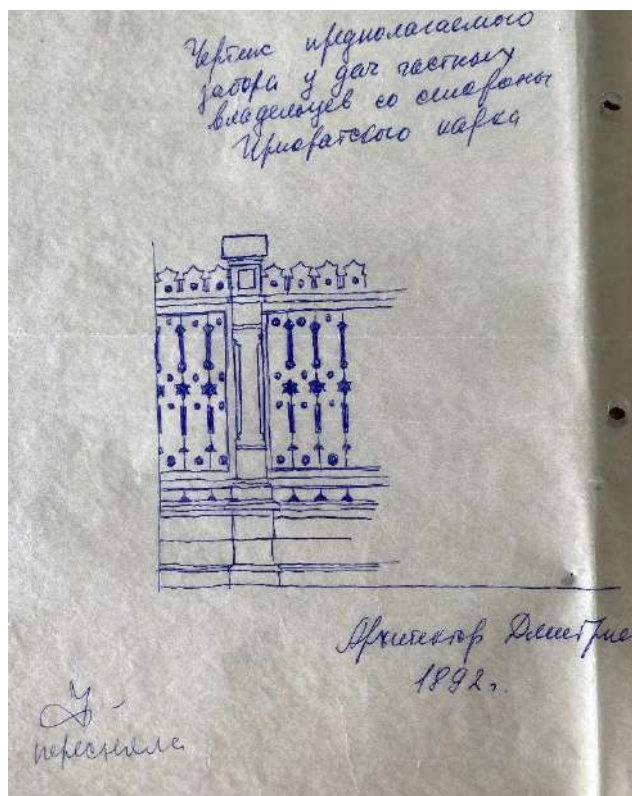 Чертеж предполагаемого
забора у дач частных
владельцев со стороны
Приоратского парка
Архитектор Дмитрие
1892 г.
пересняла